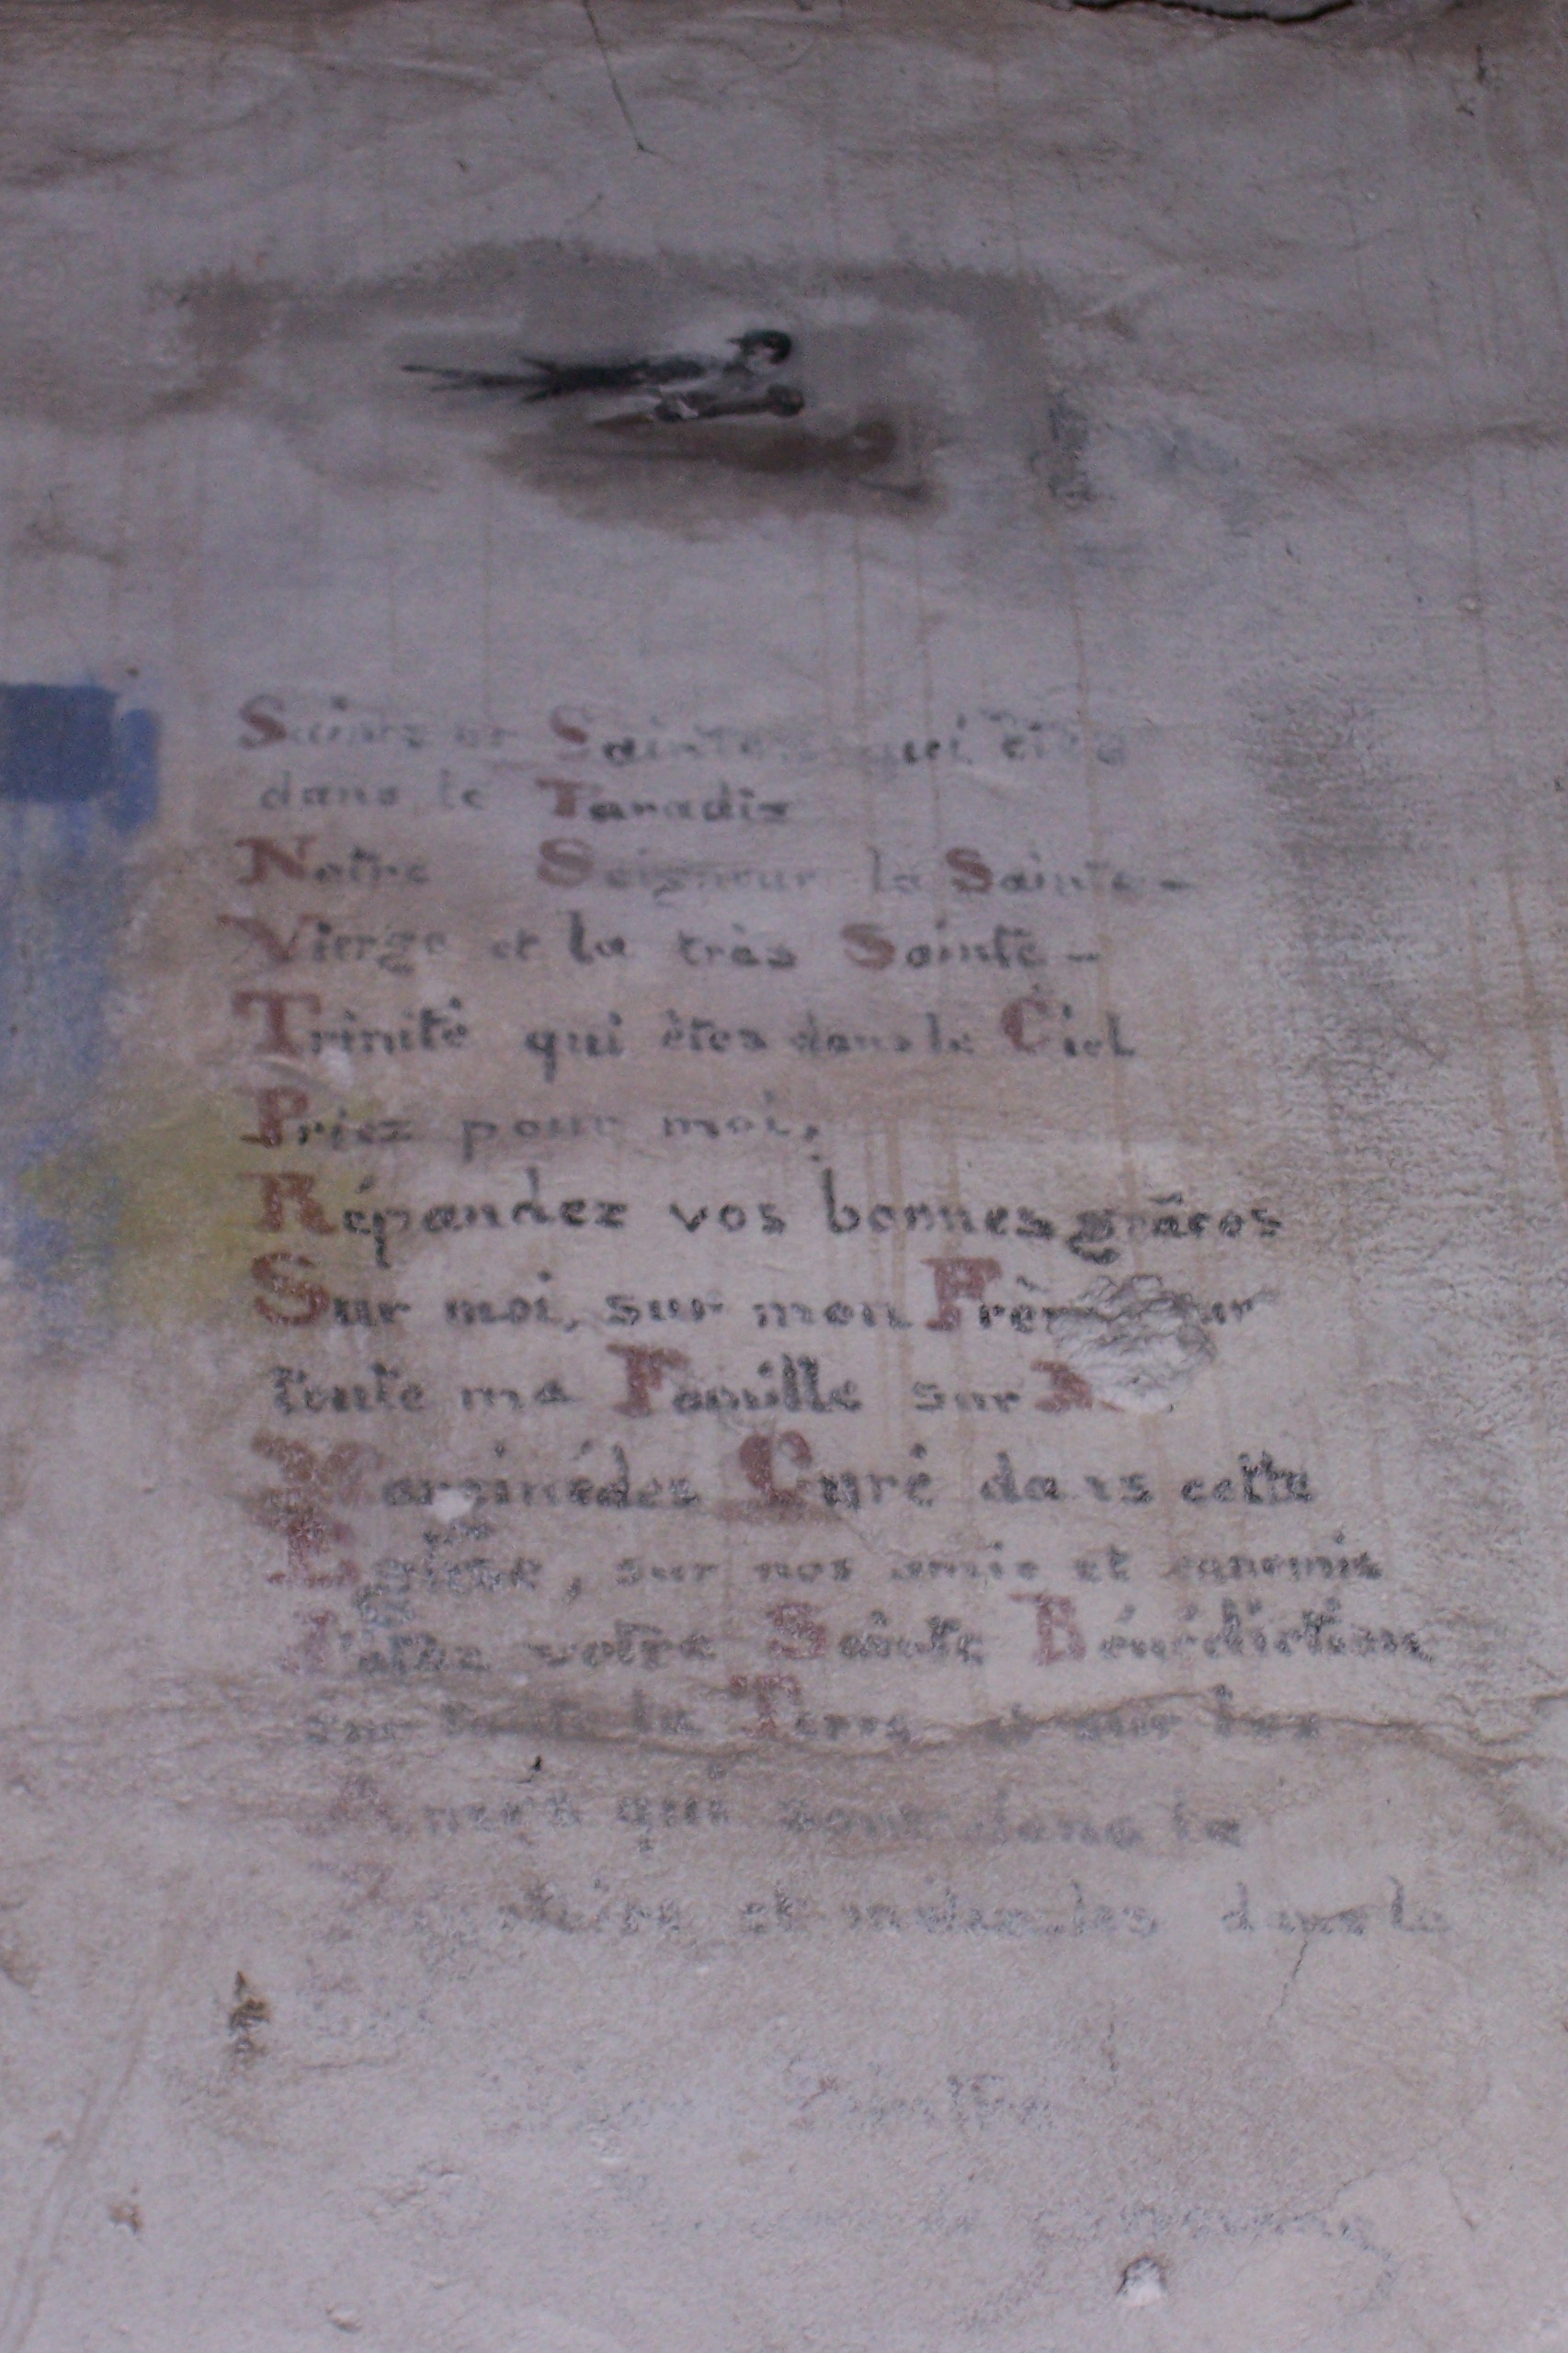 Saints et Saintes qui êtes
dans le Paradis
Notre Seigneur la Sainte-
Vierge et la très Sainte-
Trinité qui êtes dans le Ciel
Priez pour moi,
Répandez vos bonnes grâces
Sur moi, sur mon Frère sur
toute ma Famille sur
Curé dans cette
Eglise, sur nos amis et ennemis
Faites votre Sainte Bénédiction
sur toute la Terre et sur les
Ames qui sont dans le
et mettez-les dans le